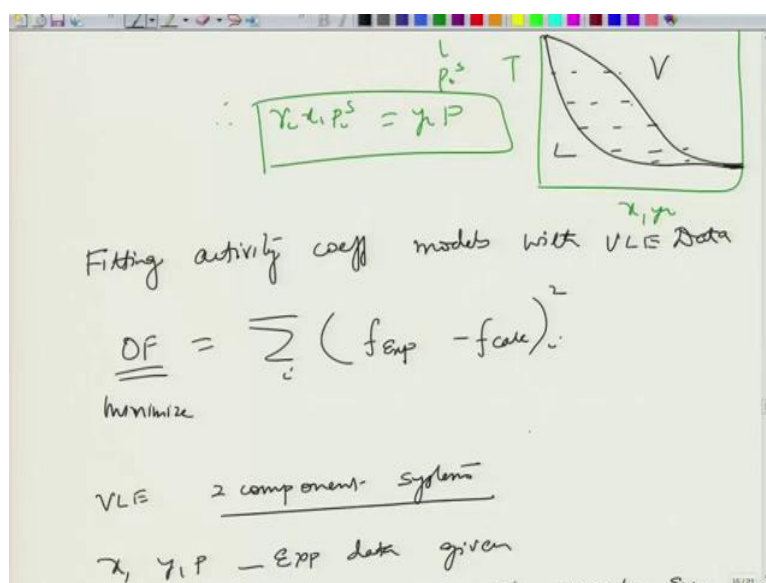 L
Pᵢˢ T V
∴ γᵢ xᵢ Pᵢˢ = yᵢ P
L
x, y
Fitting activity coeff models with VLE Data
OF = Σᵢ (f Exp - f calc)²ᵢ
minimize
VLE 2 component systems
x, y, P — Exp data given